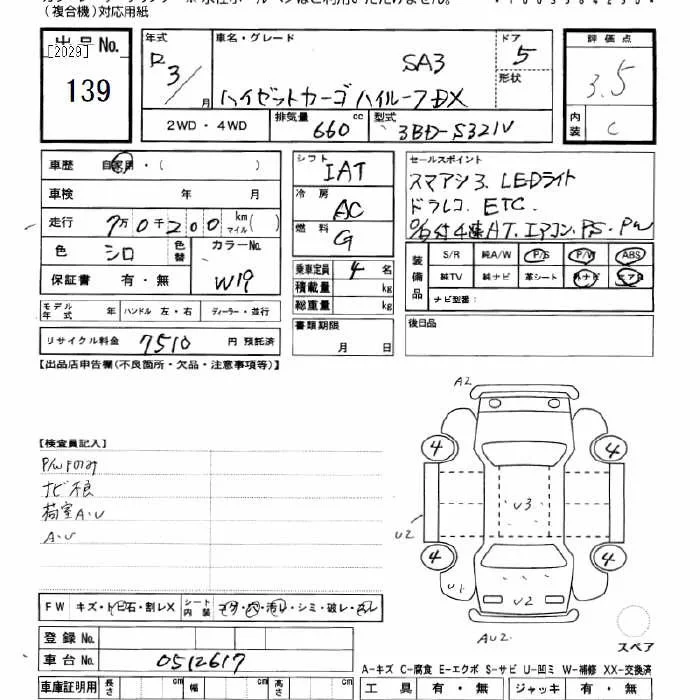 (複合機)対応用紙
出品No.
[2029]
139
年式
R3
月
車名・グレード
SA3
ハイゼットカーゴ ハイルーフDX
ドア
5
形状
評価点
3.5
内装
C
2WD・4WD
排気量
660
cc
型式
3BD-S321V
車歴 自家用・( )
車検 年 月
走行 7万0千200 km マイル( )
色 シロ 色替 カラーNo. W19
保証書 有・無
モデル年式 年 ハンドル 左・右 ディーラー・並行
リサイクル料金 7510 円 預託済
シフト
IAT
冷房
AC
燃料
G
乗車定員 4 名
積載量 kg
総重量 kg
書類期限
月 日
セールスポイント
スマアシ3. LEDライト
ドラレコ. ETC.
4速AT. エアコン. P/S. P/W
装備品
S/R 純A/W P/S P/W ABS
純TV 純ナビ 革シート 外ナビ エアB
ナビ型番:
後日品
【出品店申告欄(不良箇所・欠品・注意事項等)】
【検査員記入】
ナビ不良
荷室A・U
A・U
A2
4
4
U3
U2
4
4
U1
U2
AU2
スペア
FW キズ・トビ石・割レX シート内装 コゲ・穴・汚レ・シミ・破レ・スレ
登録No.
車台No. 0512617
A-キズ C-腐食 E-エクボ S-サビ U-凹ミ W-補修 XX-交換済
車庫証明用 長さ cm 幅 cm 高さ cm
工具 有・無 ジャッキ 有・無